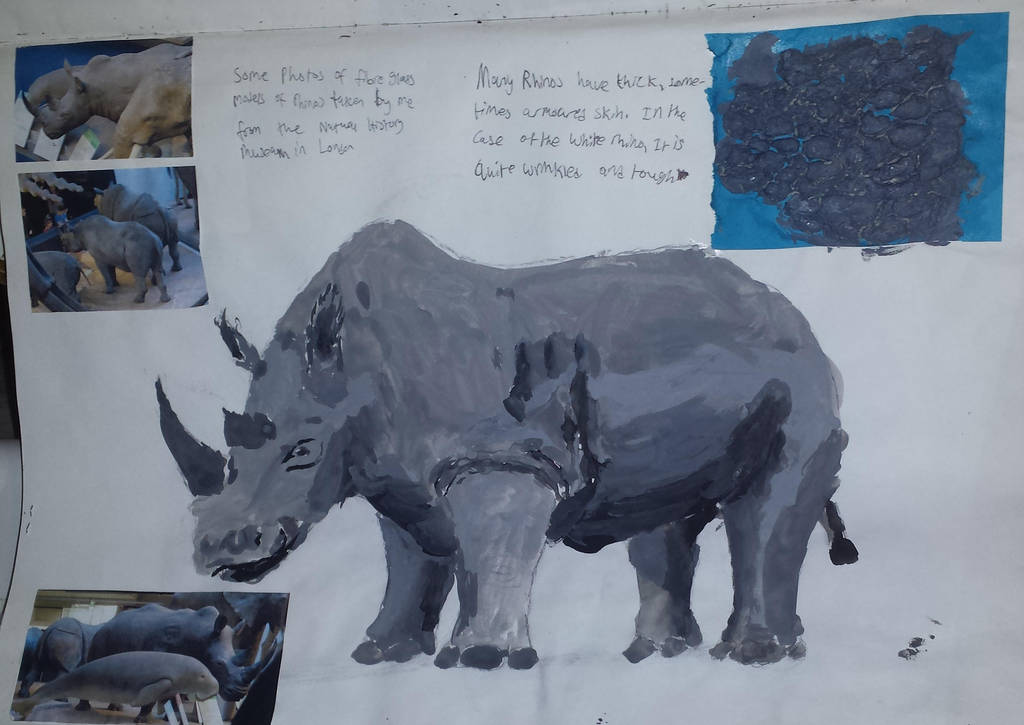 Some Photos of fibre glass
models of Rhinos taken by me
from the Natural History
Museum in London
Many Rhinos have thick, some-
times armoured skin. In the
case of the White rhino, It is
quite wrinkled and tough